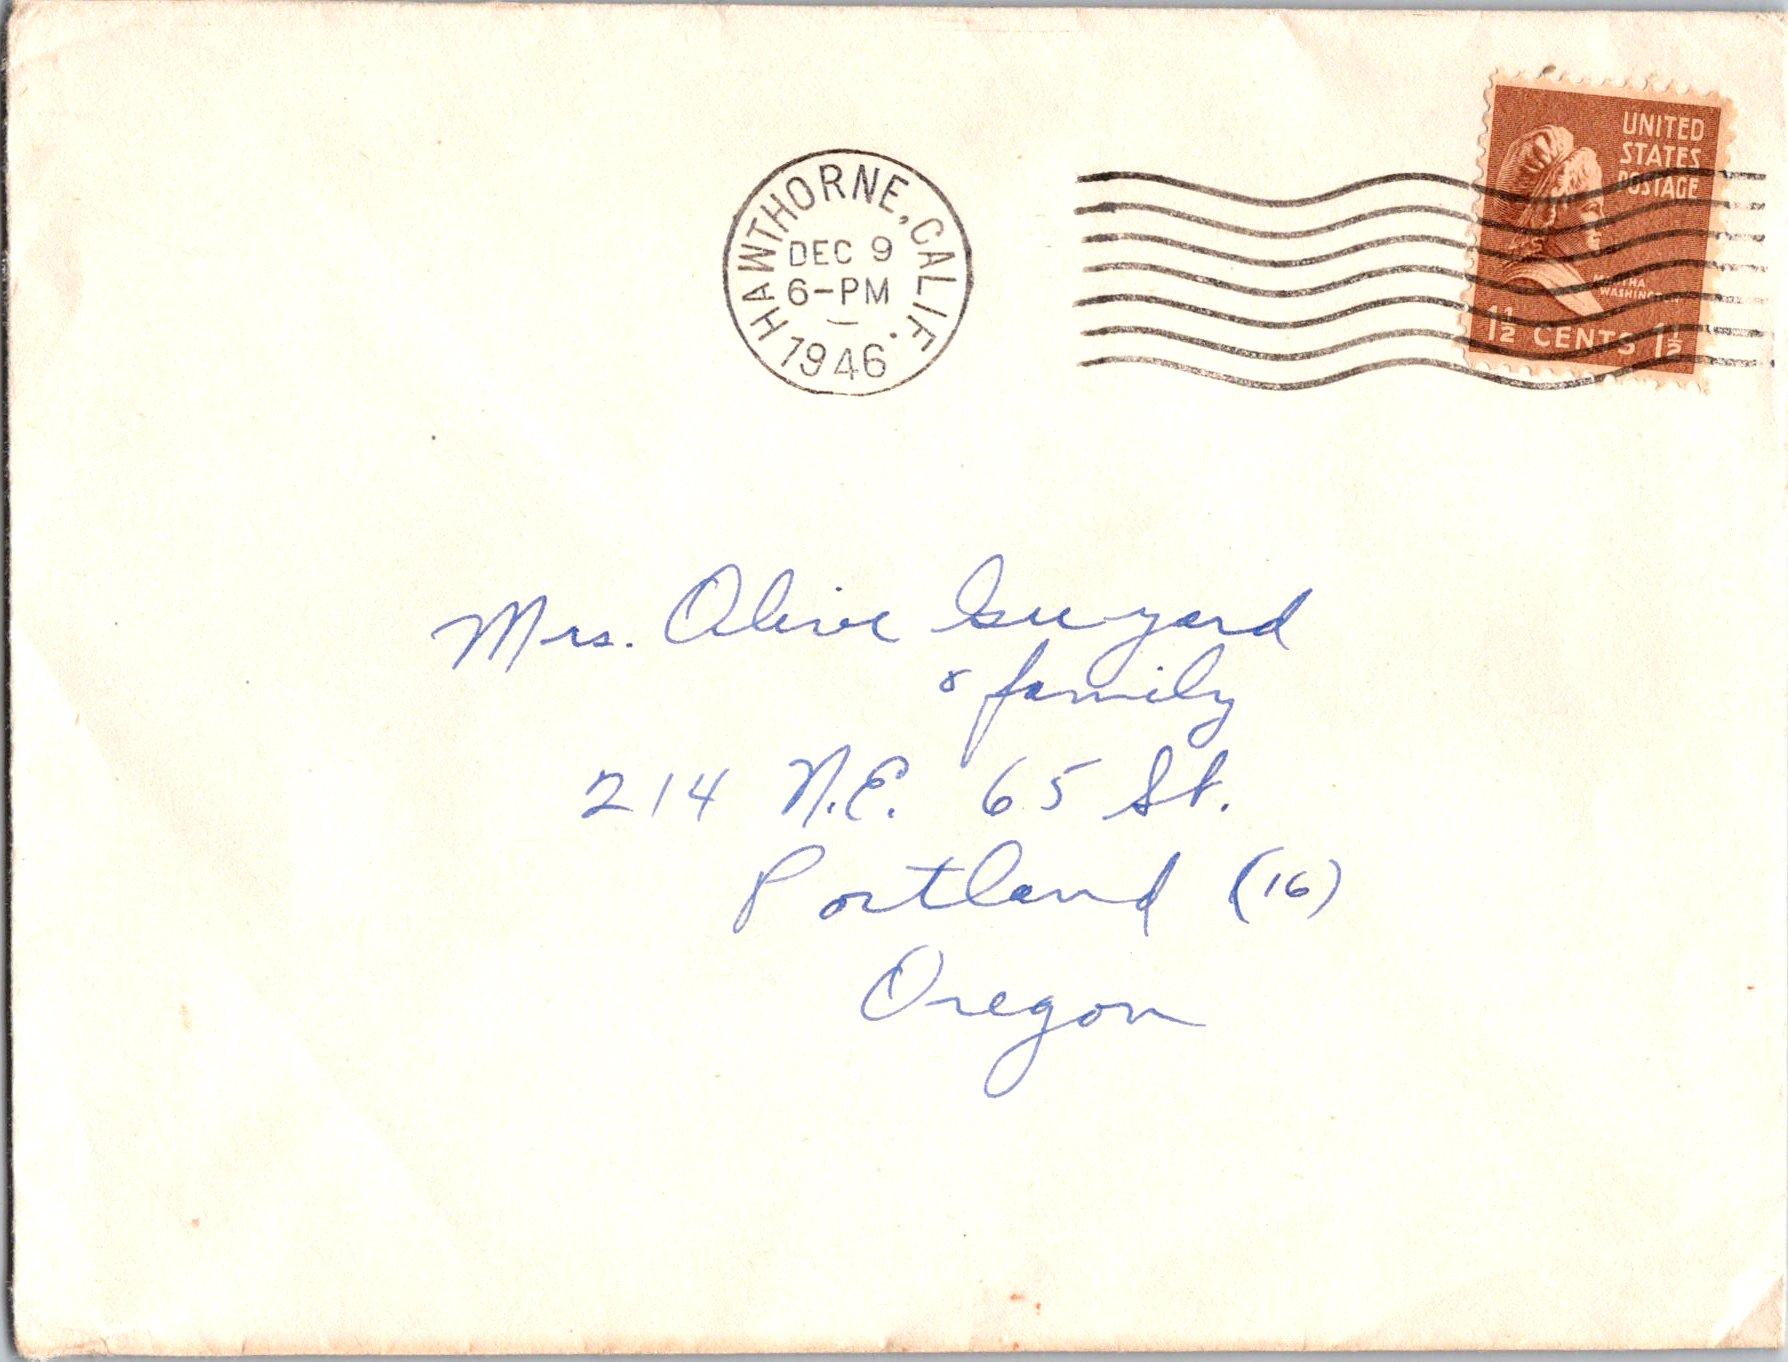 HAWTHORNE, CALIF.
DEC 9
6-PM
1946
UNITED
STATES
POSTAGE
MARTHA
WASHINGTON
1½ CENTS 1½
Mrs. Olive Guyard
& family
214 N.E. 65 St.
Portland (16)
Oregon